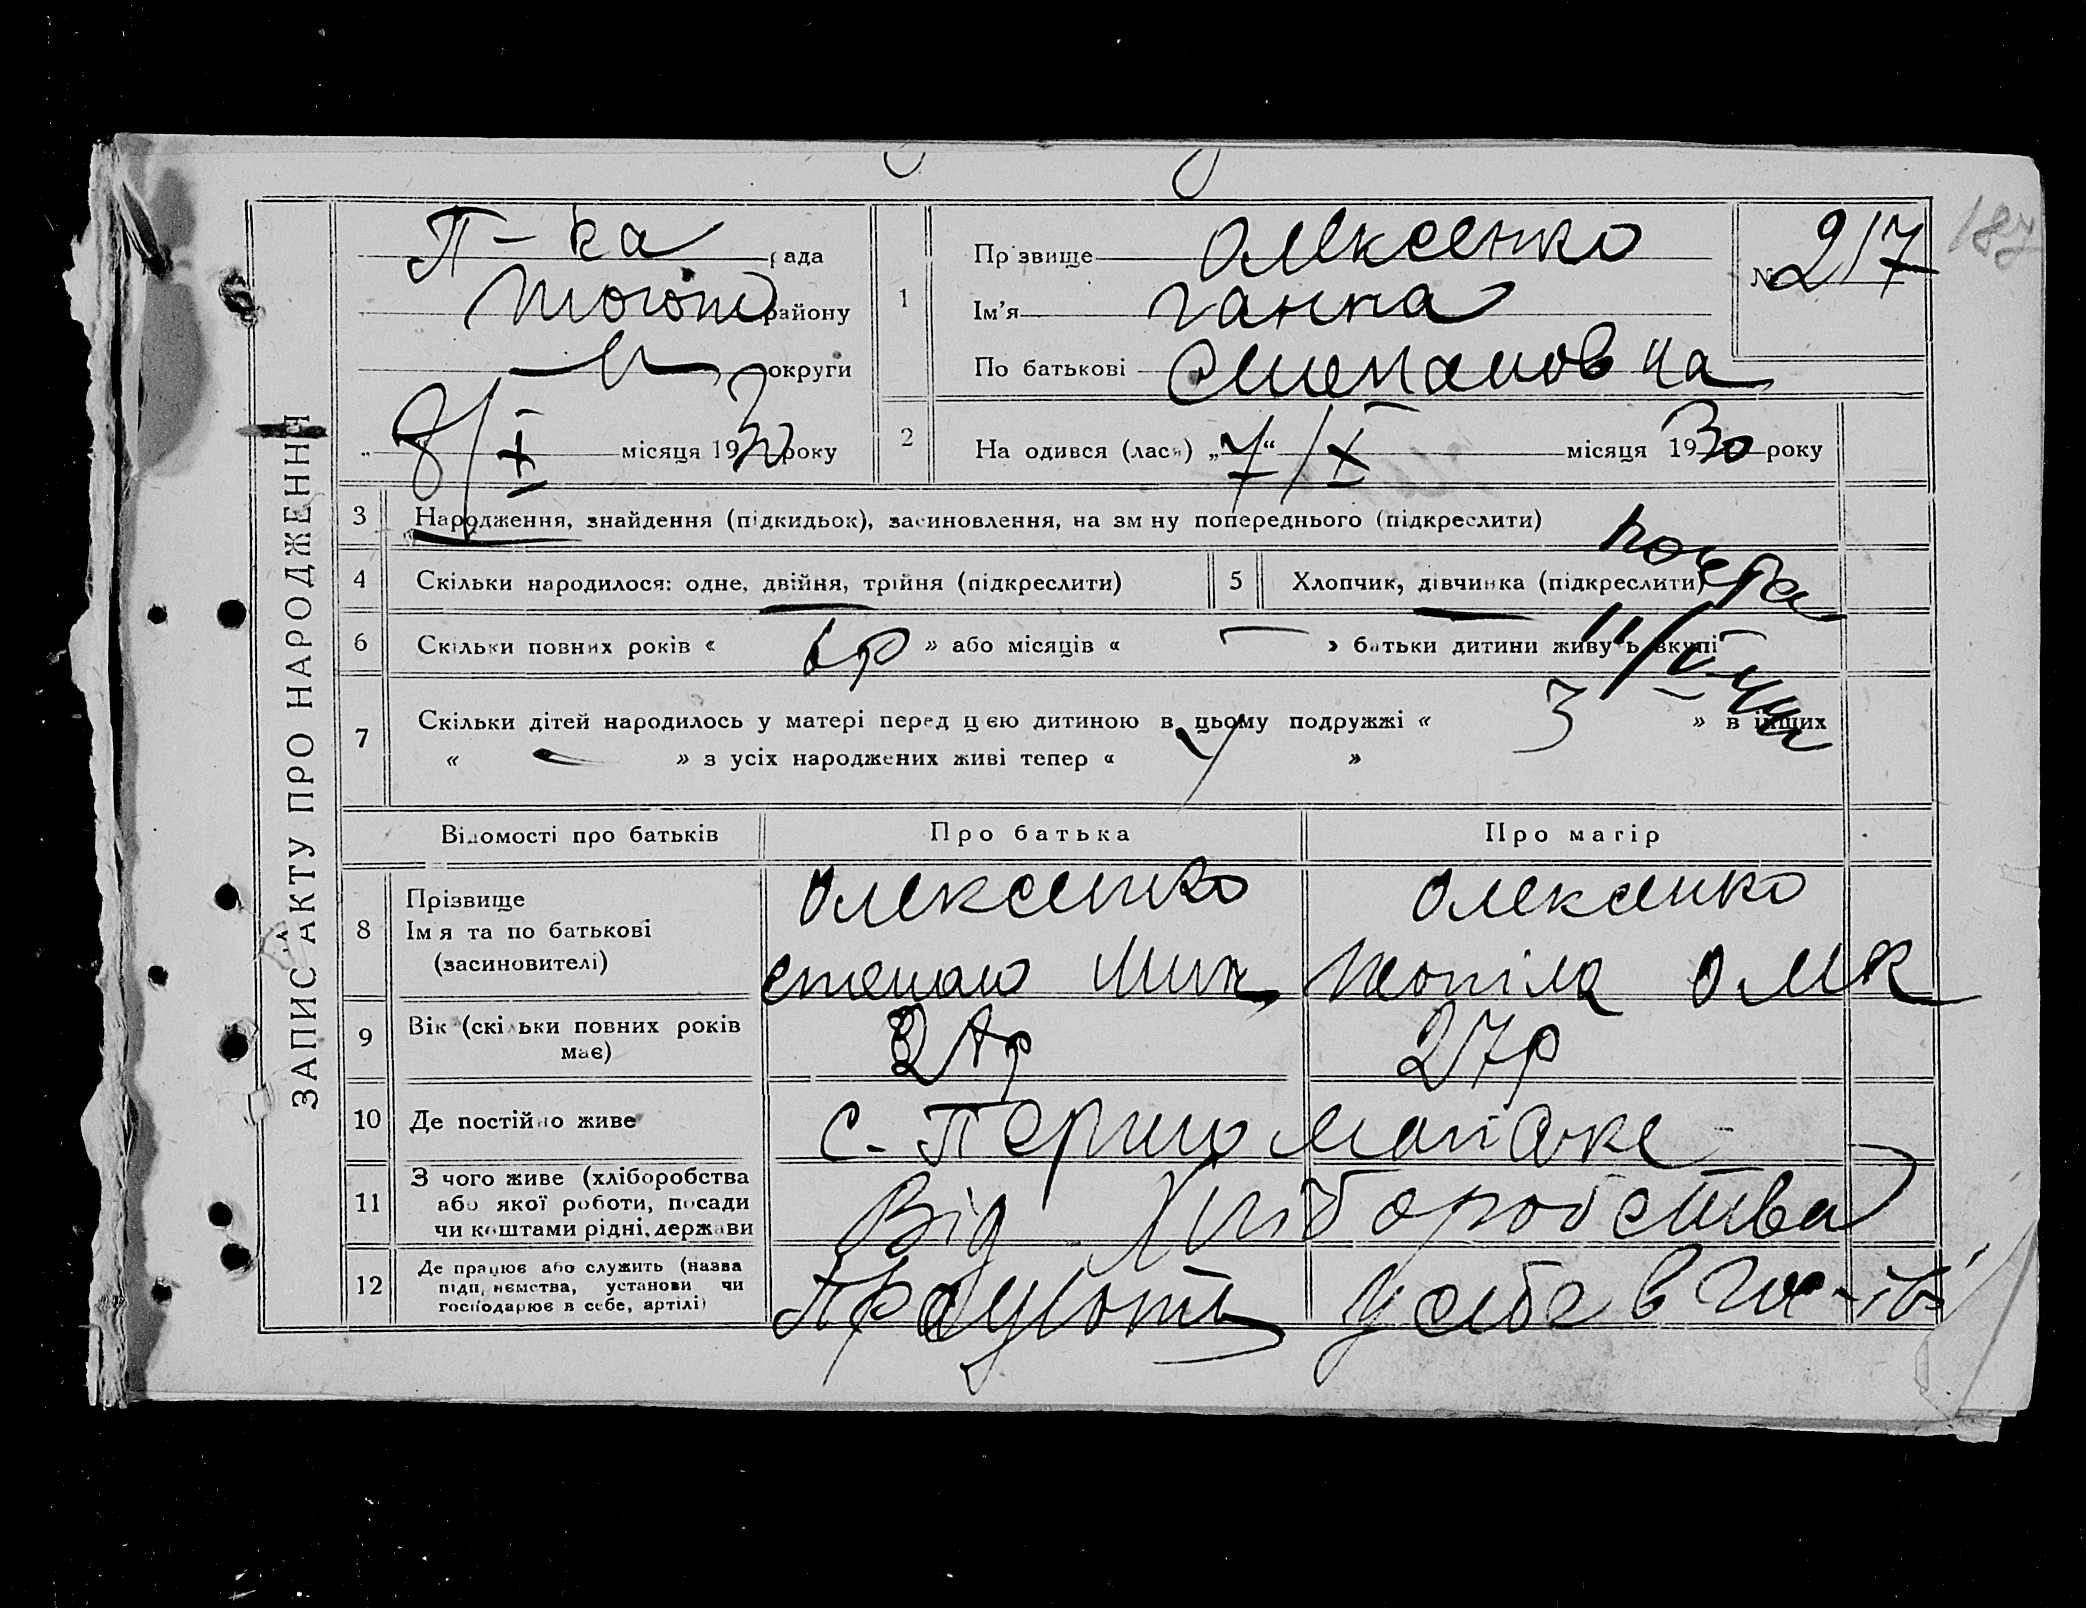 ЗАПИС АКТУ ПРО НАРОДЖЕННЯ
187
П-ка рада
району
округи
8/IX місяця 1930 року
1
Прізвище Олексенко
Ім'я Ганна
По батькові Степановна
№ 217
2
На одився (лася) „7“ /IX місяця 1930 року
3 Народження, знайдення (підкидьок), засиновлення, на зм ну попереднього (підкреслити)
4 Скільки народилося: одне, двійня, трійня (підкреслити)
5 Хлопчик, дівчинка (підкреслити)
6 Скільки повних років « 6р » або місяців « – » батьки дитини живуть вкупі
7 Скільки дітей народилось у матері перед цією дитиною в цьому подружжі « 3 » в інших
« – » з усіх народжених живі тепер « »
Відомості про батьків Про батька Про матір
8 Прізвище
Ім я та по батькові
(засиновителі)
Олексенко Олексенко
степан
9 Вік (скільки повних років
має)
27р
10 Де постійно живе с. Першо майське
11 З чого живе (хліборобства
або якої роботи, посади
чи коштами рідні, держави
Від Хліборобства
12 Де працює або служить (назва
підп, иємства, установи чи
господарює в себе, артілі)
Працюють у себе в